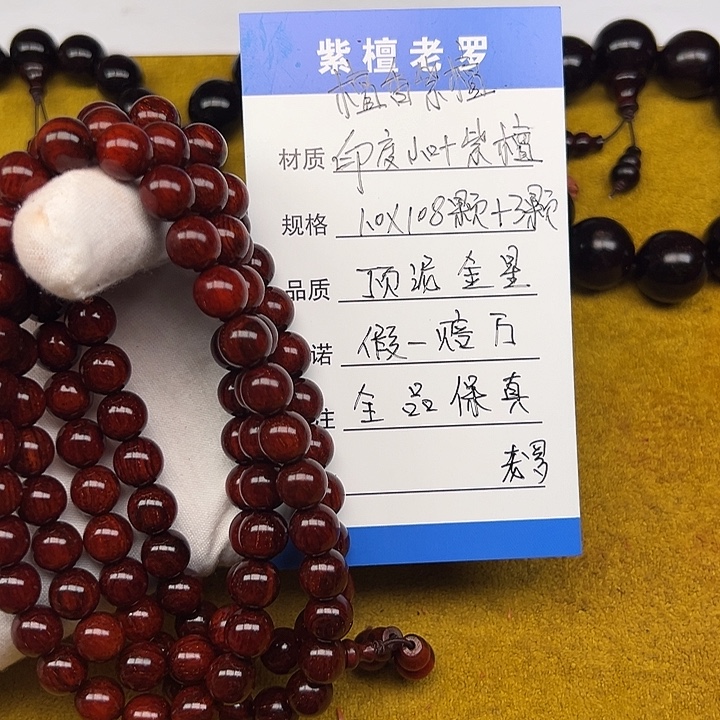 紫檀老罗
檀香紫檀
材质 印度小叶紫檀
规格 1.0X108颗+3颗
品质 顶泥金星
诺 假一赔万
注 全品保真
老罗